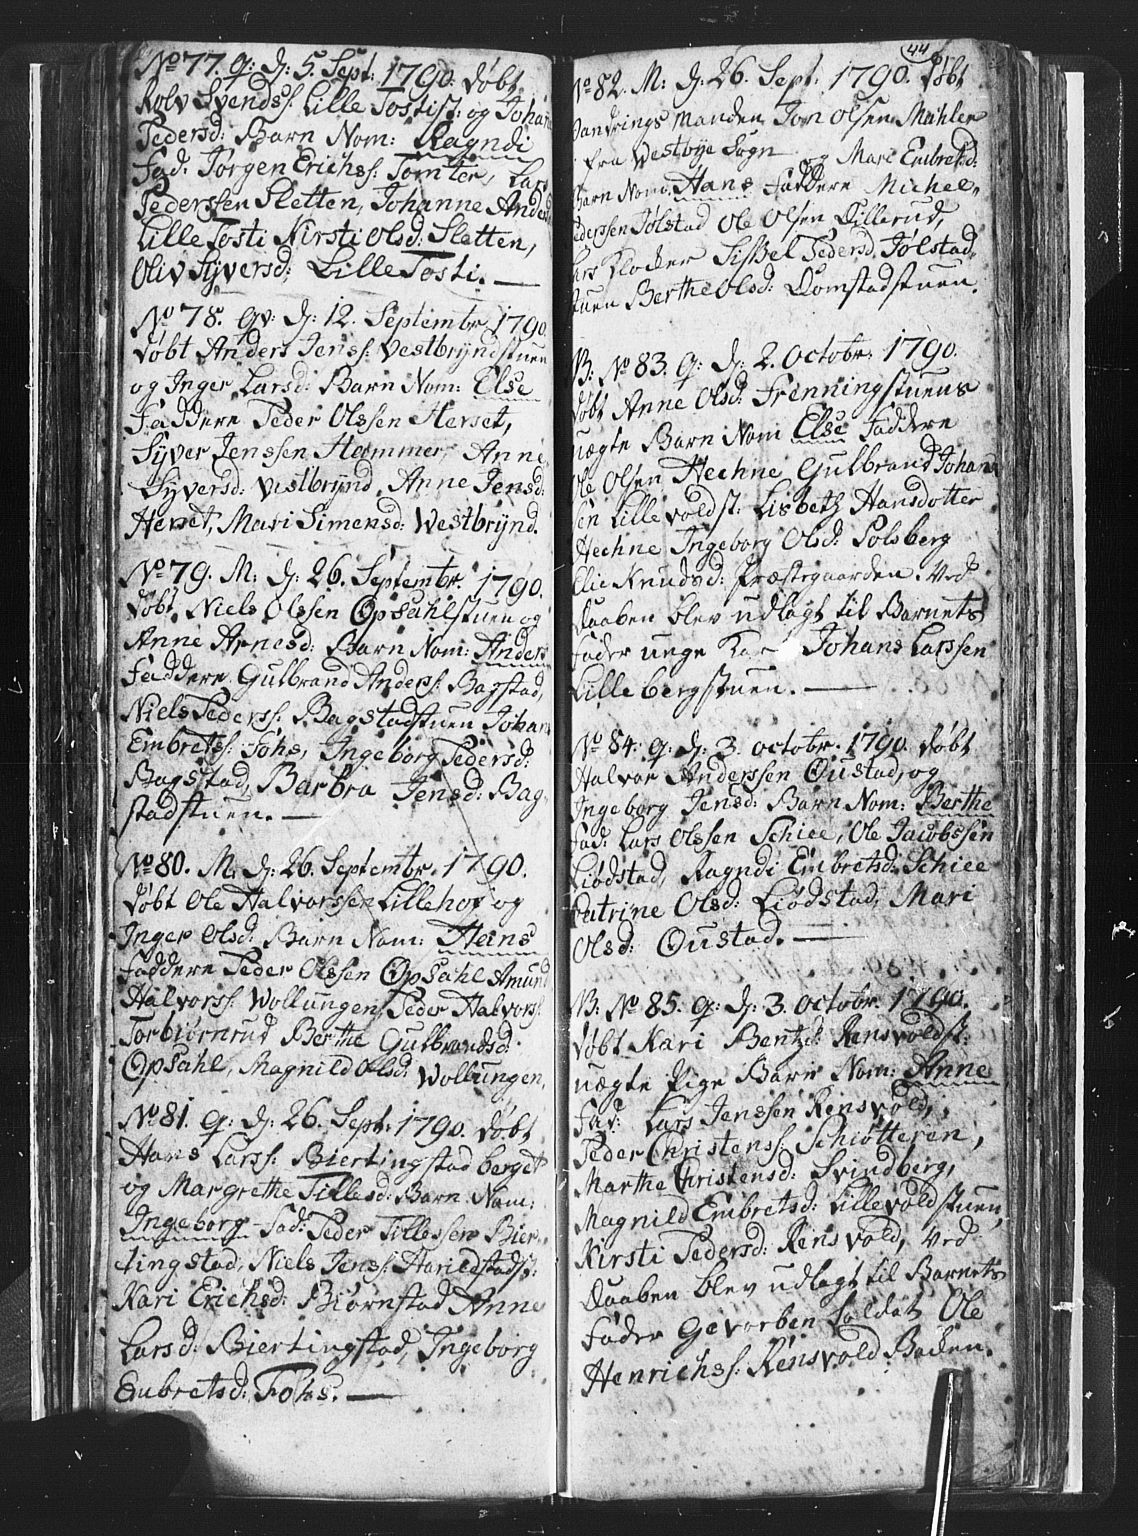 No 77. q: d: 5. Sept: 1790. døbt
Rolv Svends: Lille Tostist: og Johan
Pedersd: Barn Nom: Ragndi
Fad. Jørgen Erichs: Tomter, Lars
Pederssen Sletten, Johanne Anders
Lille Tosti Kirsti Olsd: Sletten,
Oliv Syversd: Lille Tosti.
No 78. qv: d: 12. Septembr. 1790.
døbt Anders Jens: Vestbryndstuen
og Inger Larsd: Barn Nom: Else
Faddere Peder Olssen Herset,
Syver Jenssen Hammer, Anne
Syversd: Vestbrynd, Anne Jensd:
Herset, Mari Simensd: Westbrynd.
No 79. M: d: 26. Septembr. 1790.
døbt Niels Olssen Opsahlstuen og
Anne Arnesd: Barn Nom: Anders
Faddere Gulbrand Anders: Bagstad,
Niels Peders: Bagstadstuen Johan
Embrets: Fohs, Ingeborg Pedersd:
Bagstad, Barbra Jensd: Bag-
stadstuen.
No 80. M: d: 26. Septembr. 1790.
døbt Ole Halvorssen Lillehof og
Inger Olsd: Barn Nom: Heins
Faddere Peder Olssen Opsahl Amund
Halvors: Wollungen, Peder Halvors:
Torbiørnrud Berthe Gulbrandsd:
Opsahl, Magnild Olsd: Wollungen,
No 81. q: d: 26. Sept: 1790. døbt
Hans Lars: Biertingstad berget
og Margrethe Tillesd: Barn Nom:
Ingeborg Fad: Peder Tillessen Bier-
tingstad, Niels Jens: Harildstadst:
Kari Erichsd: Biørnstad Anne
Larsd: Biertingstad, Ingeborg
Embretsd: Fohs.
44
No 82. M: d: 26. Sept: 1790. døbt
Vandrings Manden Jon Olsen Mühler
fra Westøye Sogn og Mari Embretsd:
Barn Nom: Hans Faddere Michel
Pederssen Jølstad Ole Olsen Dillerud,
Lars Klocker Sissel Pedersd. Jølstad-
stuen Berthe Olsd: Domstadstuen.
B: No 83. q: d: 2. Octobr: 1790.
døbt Anne Olsd: Frenningstuens
uægte Barn Nom Else Faddere
Ole Olsen Hechne Gulbrand Johans
sen Lillevoldst: Lisbeth Hansdotter
Hechne Ingeborg Olsd: Solsberg
Elie Knudsd: Præstegaarden. Ved
Daaben blev udlagt til Barnets
Fader unge Kar Johans Larssen
Lillebergstuen.
No 84. q: d: 3. Octobr. 1790. døbt
Halvor Anderssen Oustad, og
Ingeborg Jensd: Barn Nom: Berthe
Fad: Lars Olssen Schiee, Ole Jacobssen
Liødstad, Ragndi Embretsd: Schiee
Catrine Olsd: Liødstad, Mari
Olsd: Oustad.
B: No 85. q: d: 3. Octobr. 1790.
døbt Kari Bentzd: Rensvoldst:
uægte Pige Barn Nom: Anne
Fad: Lars Jenssen Rensvold,
Peder Christens: Schiøtteren,
Marthe Christensd: Svindberg,
Magnild Embretsd: Lillevoldstuen,
Kirsti Pedersd: Rensvold, Ved
Daaben blev udlagt til Barnets
Fader Gevorben Soldat Ole
Henrichs: Rensvold Baden.